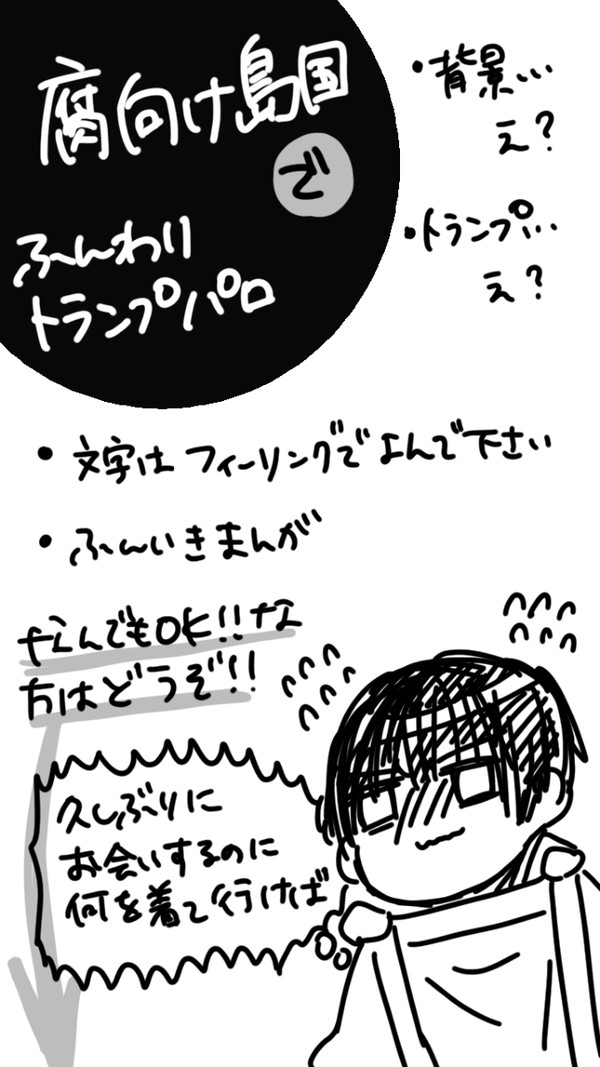 腐向け島国
で
ふんわり
トランプパロ
・背景…
え？
・トランプ…
え？
・文字はフィーリングでよんで下さい
・ふんいきまんが
なんでもOK!!な
方はどうぞ!!
久しぶりに
お会いするのに
何を着て行けば